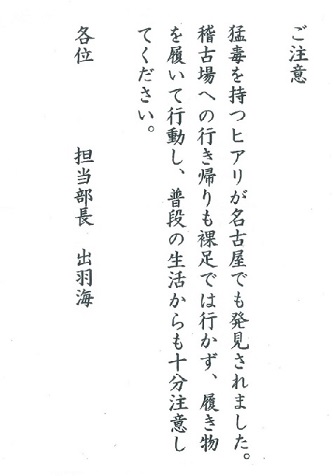 ご注意
猛毒を持つヒアリが名古屋でも発見されました。
稽古場への行き帰りも裸足では行かず、履き物
を履いて行動し、普段の生活からも十分注意し
てください。
各位　　　担当部長　出羽海